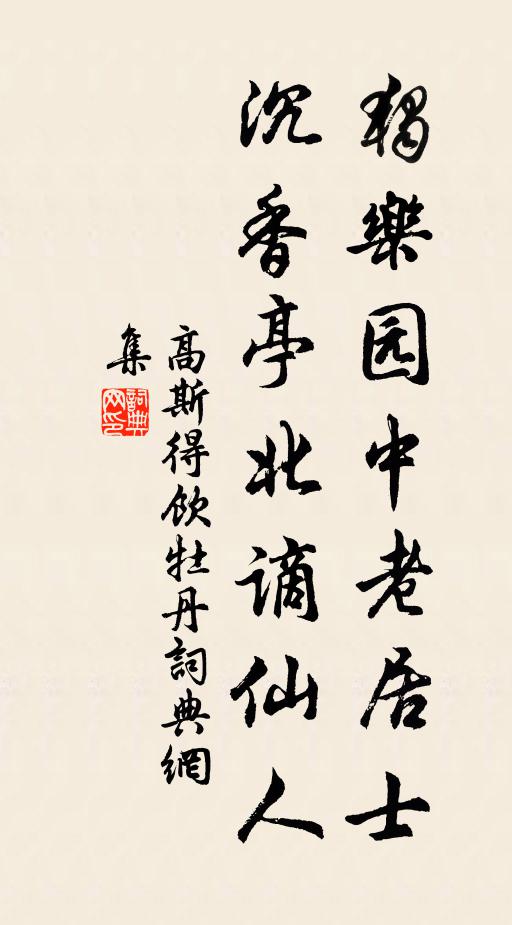 獨樂园中老居士
沉香亭北谪仙人
高斯得飲牡丹詞典網
集
詞典
网印